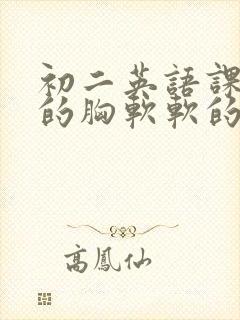 初二英語課
的胸軟軟的
高鳳仙